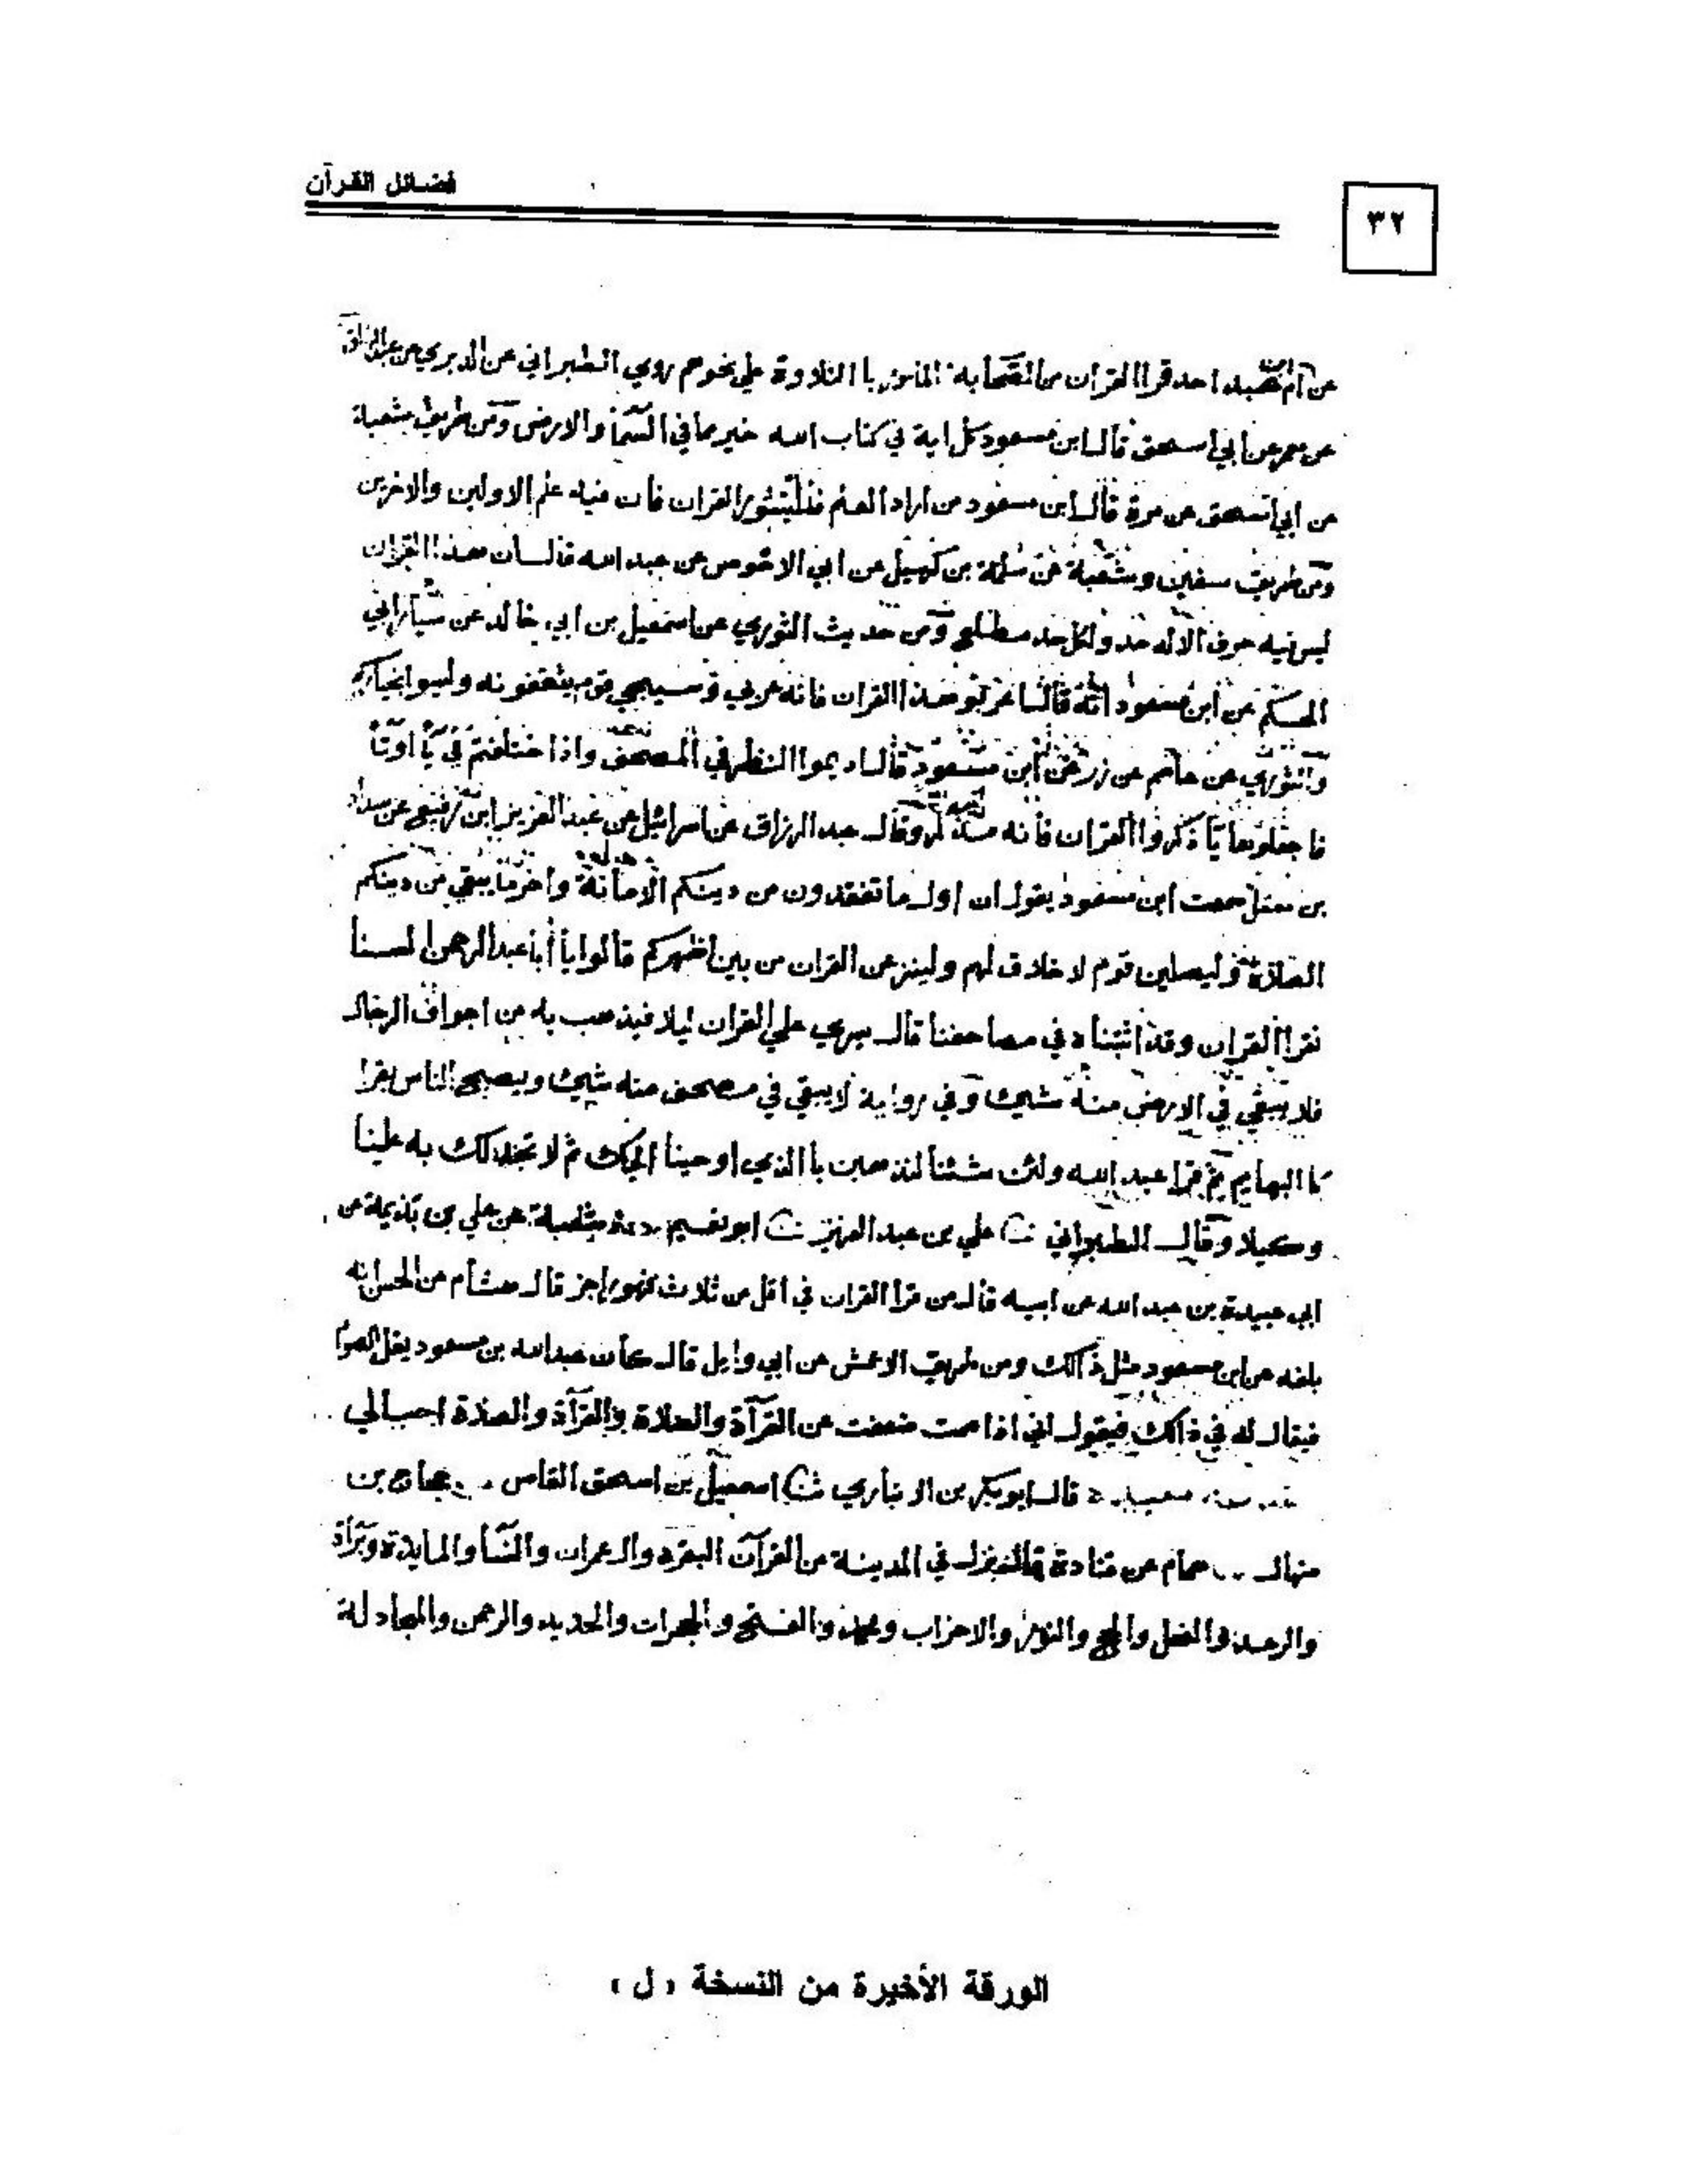 فضائل القرآن
٣٢
عن ابن أم عبد احد قرا القران من الصحابة المأمور بالتلاوة علي نحوهم روي الطبراني عن الدبري عن عبد الرزاق
عن معمر عن ابي اسحق قال ابن مسعود كل اية في كتاب الله خير مما في السما والارض ومن طريق شعبة
عن ابي اسحق عن مرة قال ابن مسعود من اراد العلم فليثور القران فان فيه علم الاولين والاخرين
ومن طريق سفين وشعبة عن سلمة بن كهيل عن ابي الاحوص عن عبد الله قال ان هذا القران
ليس فيه حرف الا له حد ولكل حد مطلع ومن حديث الثوري عن اسمعيل بن ابي خالد عن سيار ابي
الحكم عن ابن مسعود انه قال اعربو هذا القران فانه عربي وسيجي قوم يثقفونه وليسوا بخياركم
والثوري عن عاصم عن زر عن ابن مسعود قال اديموا النظر في المصحف واذا اختلفتم في يا اوتا
فاجعلوها يا ذكروا القران فانه مذكر وقال عبد الرزاق عن اسرائيل عن عبد العزيز ابن رفيع عن شداد
بن معقل سمعت ابن مسعود يقول ان اول ما تفقدون من دينكم الامانة واخر ما يبقي من دينكم
الصلاة وليصلين قوم لا خلاق لهم ولينزعن القران من بين اظهركم قالوا يا أبا عبد الرحمن السنا
نقرا القران وقد اثبتناه في مصاحفنا قال يسري علي القران ليلا فيذهب به من اجواف الرجال
فلا يبقي في الارض منه شيء وفي رواية لا يبقي في مصحف منه شيء ويصبح الناس فقرا
كا البهايم ثم قرا عبد الله ولئن شئنا لنذهبن با الذي اوحينا اليك ثم لا تجد لك به علينا
وكيلا وقال الطبراني ثنا علي بن عبد العزيز ثنا ابو نعيم شعبة عن علي بن بذيمة عن
ابي عبيدة بن عبد الله عن ابيه قال من قرأ القران في اقل من ثلاث فهو راجز قال هشام عن الحسن انه
بلغه عن ابن مسعود مثل ذالك ومن طريق الاعمش عن ابي وايل قال كان عبد الله بن مسعود يقل الصوم
فيقال له في ذالك فيقول اني اذا صمت ضعفت عن القرآة والصلاة والقرآة والصلاة احب الي
قال ابو بكر بن الانباري ثنا اسمعيل بن اسحق القاضي حجاج بن
منهال همام عن قتادة قال نزل في المدينة من القرآن البقرة وال عمران والنسا والمايدة وبرآة
والرعد والنحل والحج والنور والاحزاب ومحمد والفتح والحجرات والحديد والرحمن والمجادلة
الورقة الأخيرة من النسخة « ل »